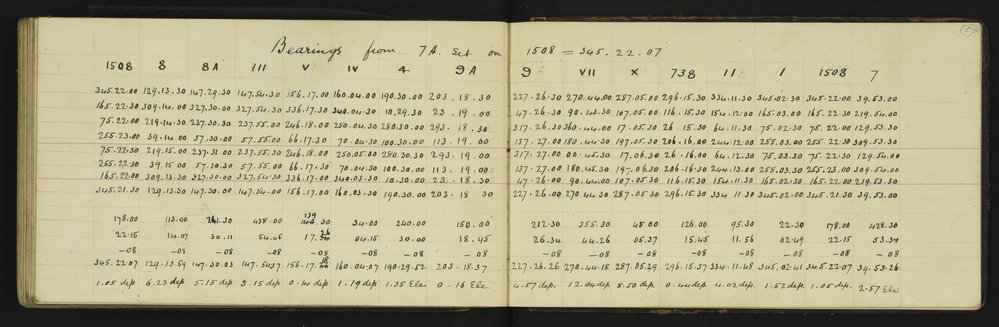 Bearings from 7A. Set on 1508 = 345.22.07
1508 8 8A III V IV 4 9A 9 VII X 738 118 1 1508 7
345.22.00 129.13.30 147.29.30 147.54.30 156.17.00 160.04.00 190.30.00 203.18.30 227.26.30 270.44.00 287.05.00 296.15.30 334.11.30 345.02.30 345.22.00 39.53.00
165.22.30 309.14.00 327.30.00 327.54.30 336.17.30 340.04.30 10.29.30 23.19.00 47.26.30 90.44.30 107.05.00 116.15.30 154.12.00 165.03.00 165.22.30 219.54.00
75.22.00 219.14.30 237.30.30 237.55.00 246.18.00 250.04.30 280.30.00 293.18.30 317.26.30 360.44.00 17.05.30 26.15.30 64.11.30 75.02.30 75.22.00 129.53.30
255.23.00 39.14.00 57.30.00 57.55.00 66.17.30 70.04.30 100.30.00 113.19.00 137.27.00 180.44.30 197.05.30 206.16.00 244.12.00 255.03.00 255.22.30 309.53.30
75.22.30 219.15.00 237.31.00 237.55.30 246.18.00 250.05.00 280.30.30 293.19.00 317.27.00 00.45.30 17.06.30 26.16.00 64.12.30 75.03.30 75.22.30 129.54.00
255.22.30 39.15.00 57.30.30 57.55.00 66.17.30 70.04.30 100.30.00 113.19.00 137.27.00 180.45.30 197.06.30 206.16.30 244.13.00 255.03.30 255.23.00 309.54.00
165.22.00 309.13.30 327.30.00 327.54.30 336.17.00 340.03.30 10.30.00 23.18.30 47.26.00 90.44.00 107.05.30 116.15.30 154.11.30 165.02.30 165.22.00 219.53.30
345.21.30 129.13.30 147.30.00 147.54.00 156.17.00 160.03.30 190.30.00 203.18.30 227.26.00 270.44.30 287.05.30 296.15.30 334.11.30 345.02.00 345.21.30 39.53.00
178.00 113.00 241.30 438.00 139.30 34.00 240.00 150.00 212.30 355.30 45.00 126.00 95.30 22.30 178.00 428.30
22.15 14.07 30.11 54.45 17.26 04.15 30.00 18.45 26.34 44.26 05.37 15.45 11.56 02.49 22.15 53.34
-08 -08 -08 -08 -08 -08 -08 -08 -08 -08 -08 -08 -08 -08 -08
345.22.07 129.13.59 147.30.03 147.54.37 156.17.18 160.04.07 190.29.52 203.18.37 227.26.26 270.44.15 287.05.29 296.15.37 334.11.48 345.02.41 345.22.07 39.53.26
1.05 dep. 6.23 dep. 5.15 dep. 3.15 dep. 0.14 dep. 1.19 dep. 1.35 Ele 0.16 Ele 4.57 dep. 12.04 dep. 8.50 dep. 0.44 dep. 4.02 dep. 1.52 dep. 1.05 dep. 2.57 Ele